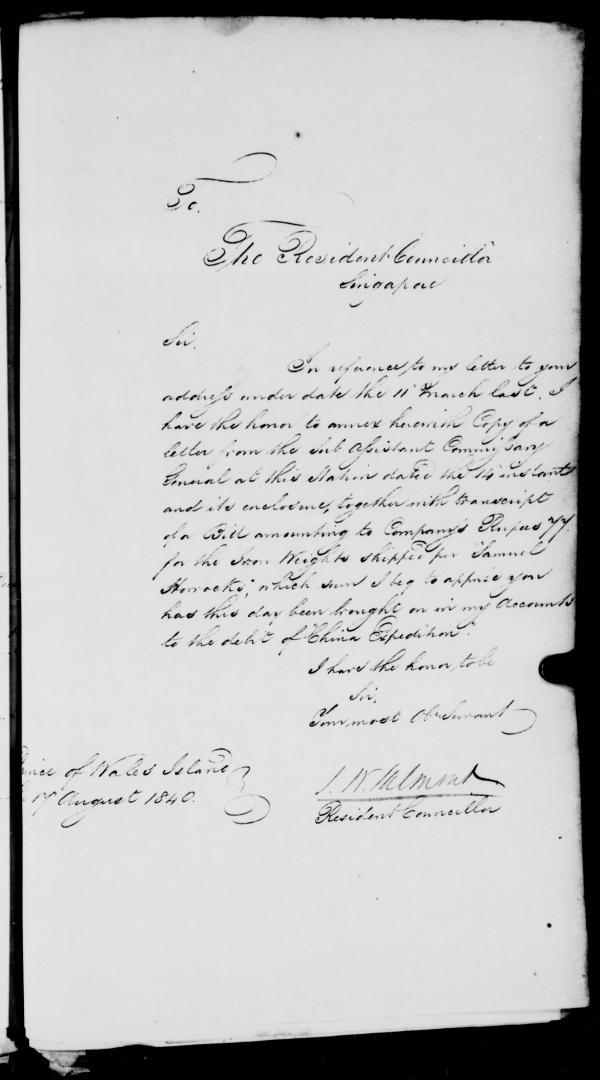 To.
The Resident Councillor
Singapore
Sir,
In reference to my letter to your
address under date the 11th March last, I
have the honor to annex herewith Copy of a
letter from the Sub Assistant Commissary
General at this Station dated the 14 instant
and its enclosure, together with transcript
of a Bill amounting to Company's Rupees 77.
for the Iron Weights shipped per "Samuel
Horrocks", which sum I beg to apprise you
has this day been brought on in my Accounts
to the debit of "China Expedition".
I have the honor to be
Sir,
Your most Obt. Servant
Prince of Wales Island
17 August 1840.
Resident Councillor